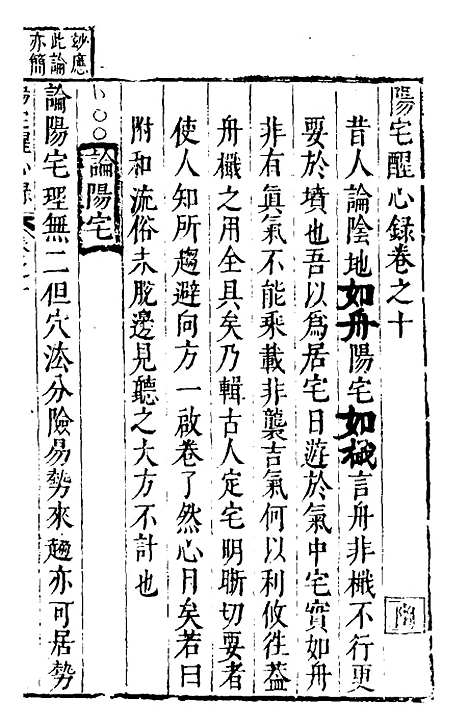 陽宅醒心録卷之十
昔人論陰地如舟陽宅如檝言舟非檝不行更
要於墳也吾以爲居宅日遊於氣中宅實如舟
非有眞氣不能乘載非襲吉氣何以利攸徃葢
舟檝之用全具矣乃輯古人定宅明晣切要者
使人知所趨避向方一啟卷了然心目矣若曰
附和流俗未脫邊見聽之大方不計也
論陽宅
論陽宅理無二但穴法分險易勢來趨亦可居勢
妙應
此論
亦簡